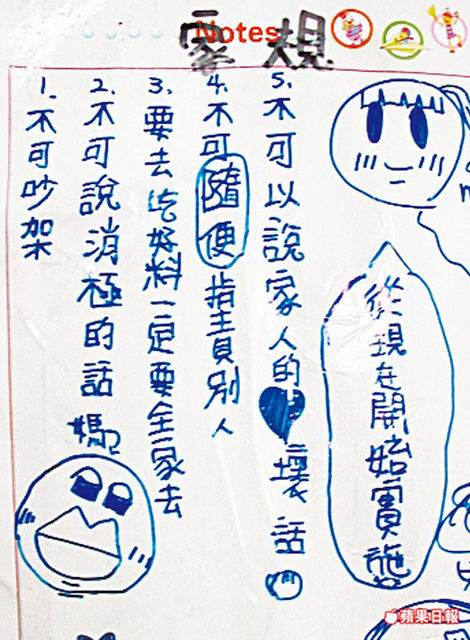 Notes
家規
1. 不可吵架
2. 不可說消極的話
媽
3. 要去吃好料一定要全家去
4. 不可隨便指責別人
5. 不可以說家人的壞話
從現在開始實施
蘋果日報